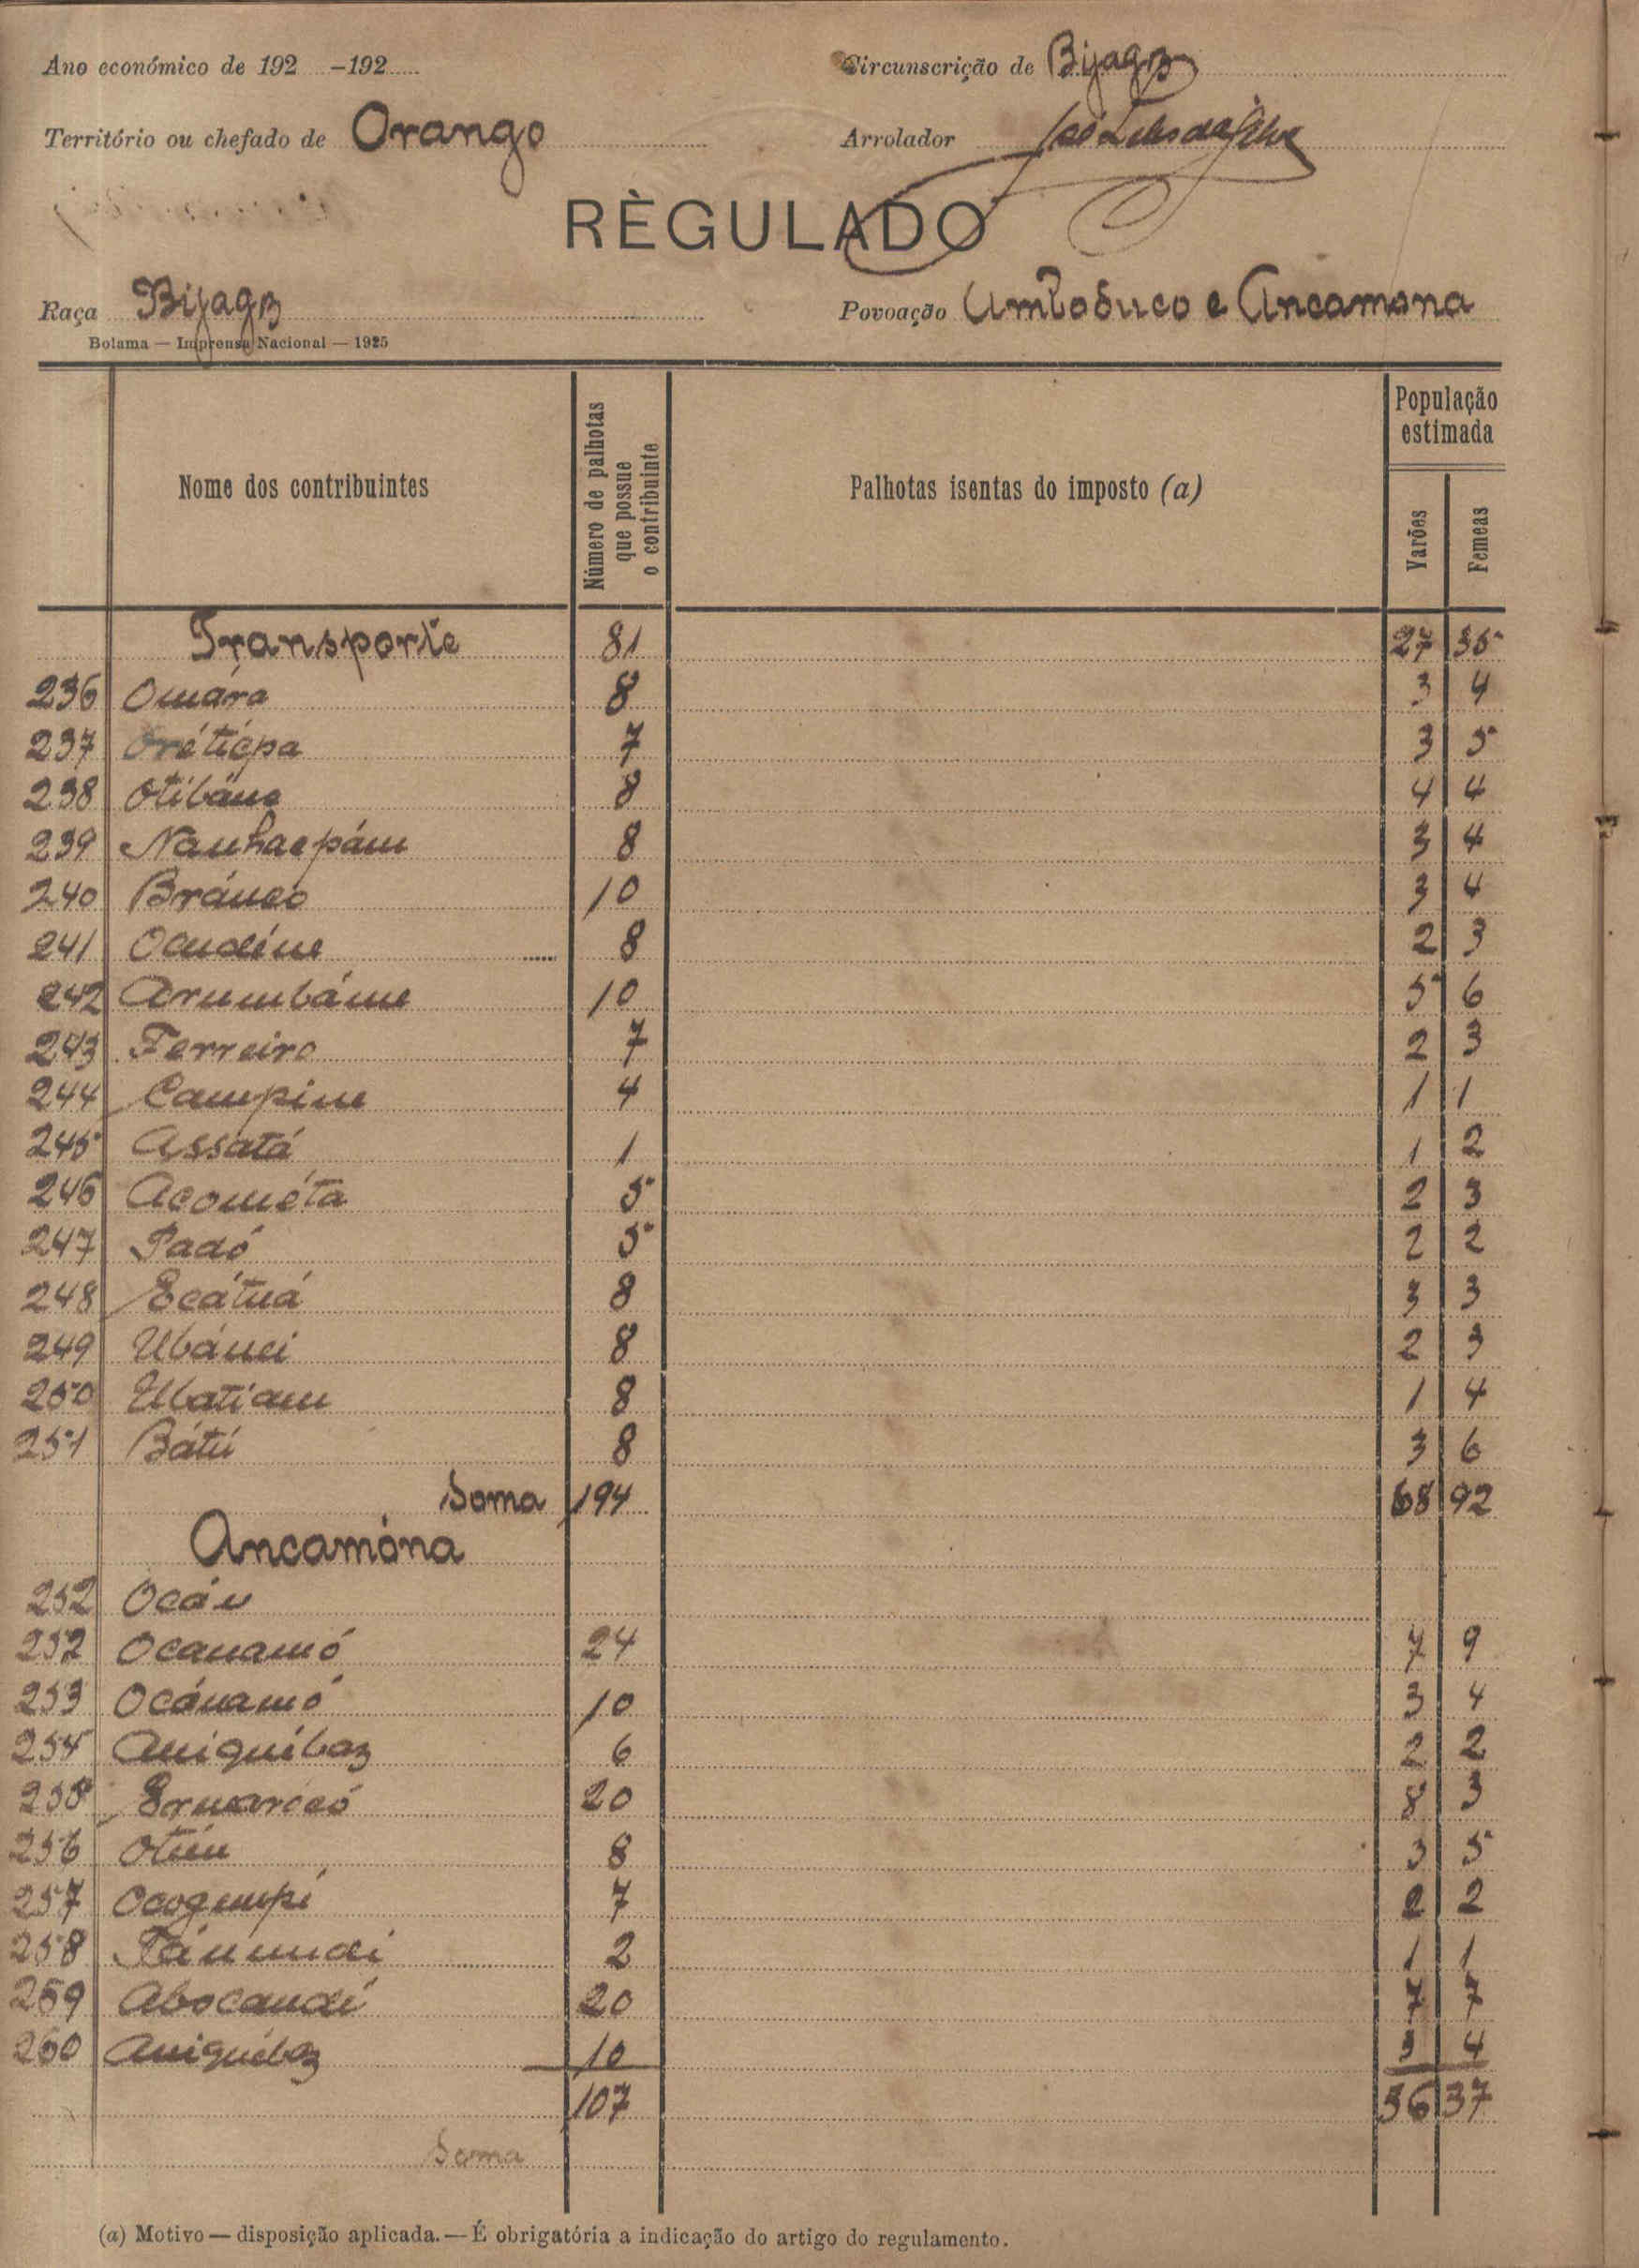 Ano económico de 192 -192
Circunscrição de Bijagoz
Território ou chefado de Orango
Arrolador
RÈGULADO
Raça Bijagoz
Povoação Umbobuco e Ancamona
Bolama — Imprensa Nacional — 1925
Nome dos contribuintes
Número de palhotas que possue o contribuinte
Palhotas isentas do imposto (a)
População estimada
Varões
Femeas
Transporte 81 27 35
236 Omára 8 3 4
237 Orétiépa 7 3 5
238 Otibáne 8 4 4
239 8 3 4
240 Bránco 10 3 4
241 8 2 3
242 Arumbáme 10 5 6
243 Ferreiro 7 2 3
244 Campine 4 1 1
245 Assatá 1 1 2
246 Acométa 5 2 3
247 Padó 5 2 2
248 Ecátuá 8 3 3
249 Ubánei 8 2 3
250 Ubatiam 8 1 4
251 Bátú 8 3 6
Soma 194 68 92
Ancamóna
252 Ocán
252 Ocanamó 24 7 9
253 Ocánamó 10 3 4
254 Aniquíboz 6 2 2
255 20 8 3
256 8 3 5
257 7 2 2
258 2 1 1
259 Abocandí 20 7 7
260 Aniquéboz 10 3 4
107 36 37
Soma
(a) Motivo — disposição aplicada. — É obrigatória a indicação do artigo do regulamento.